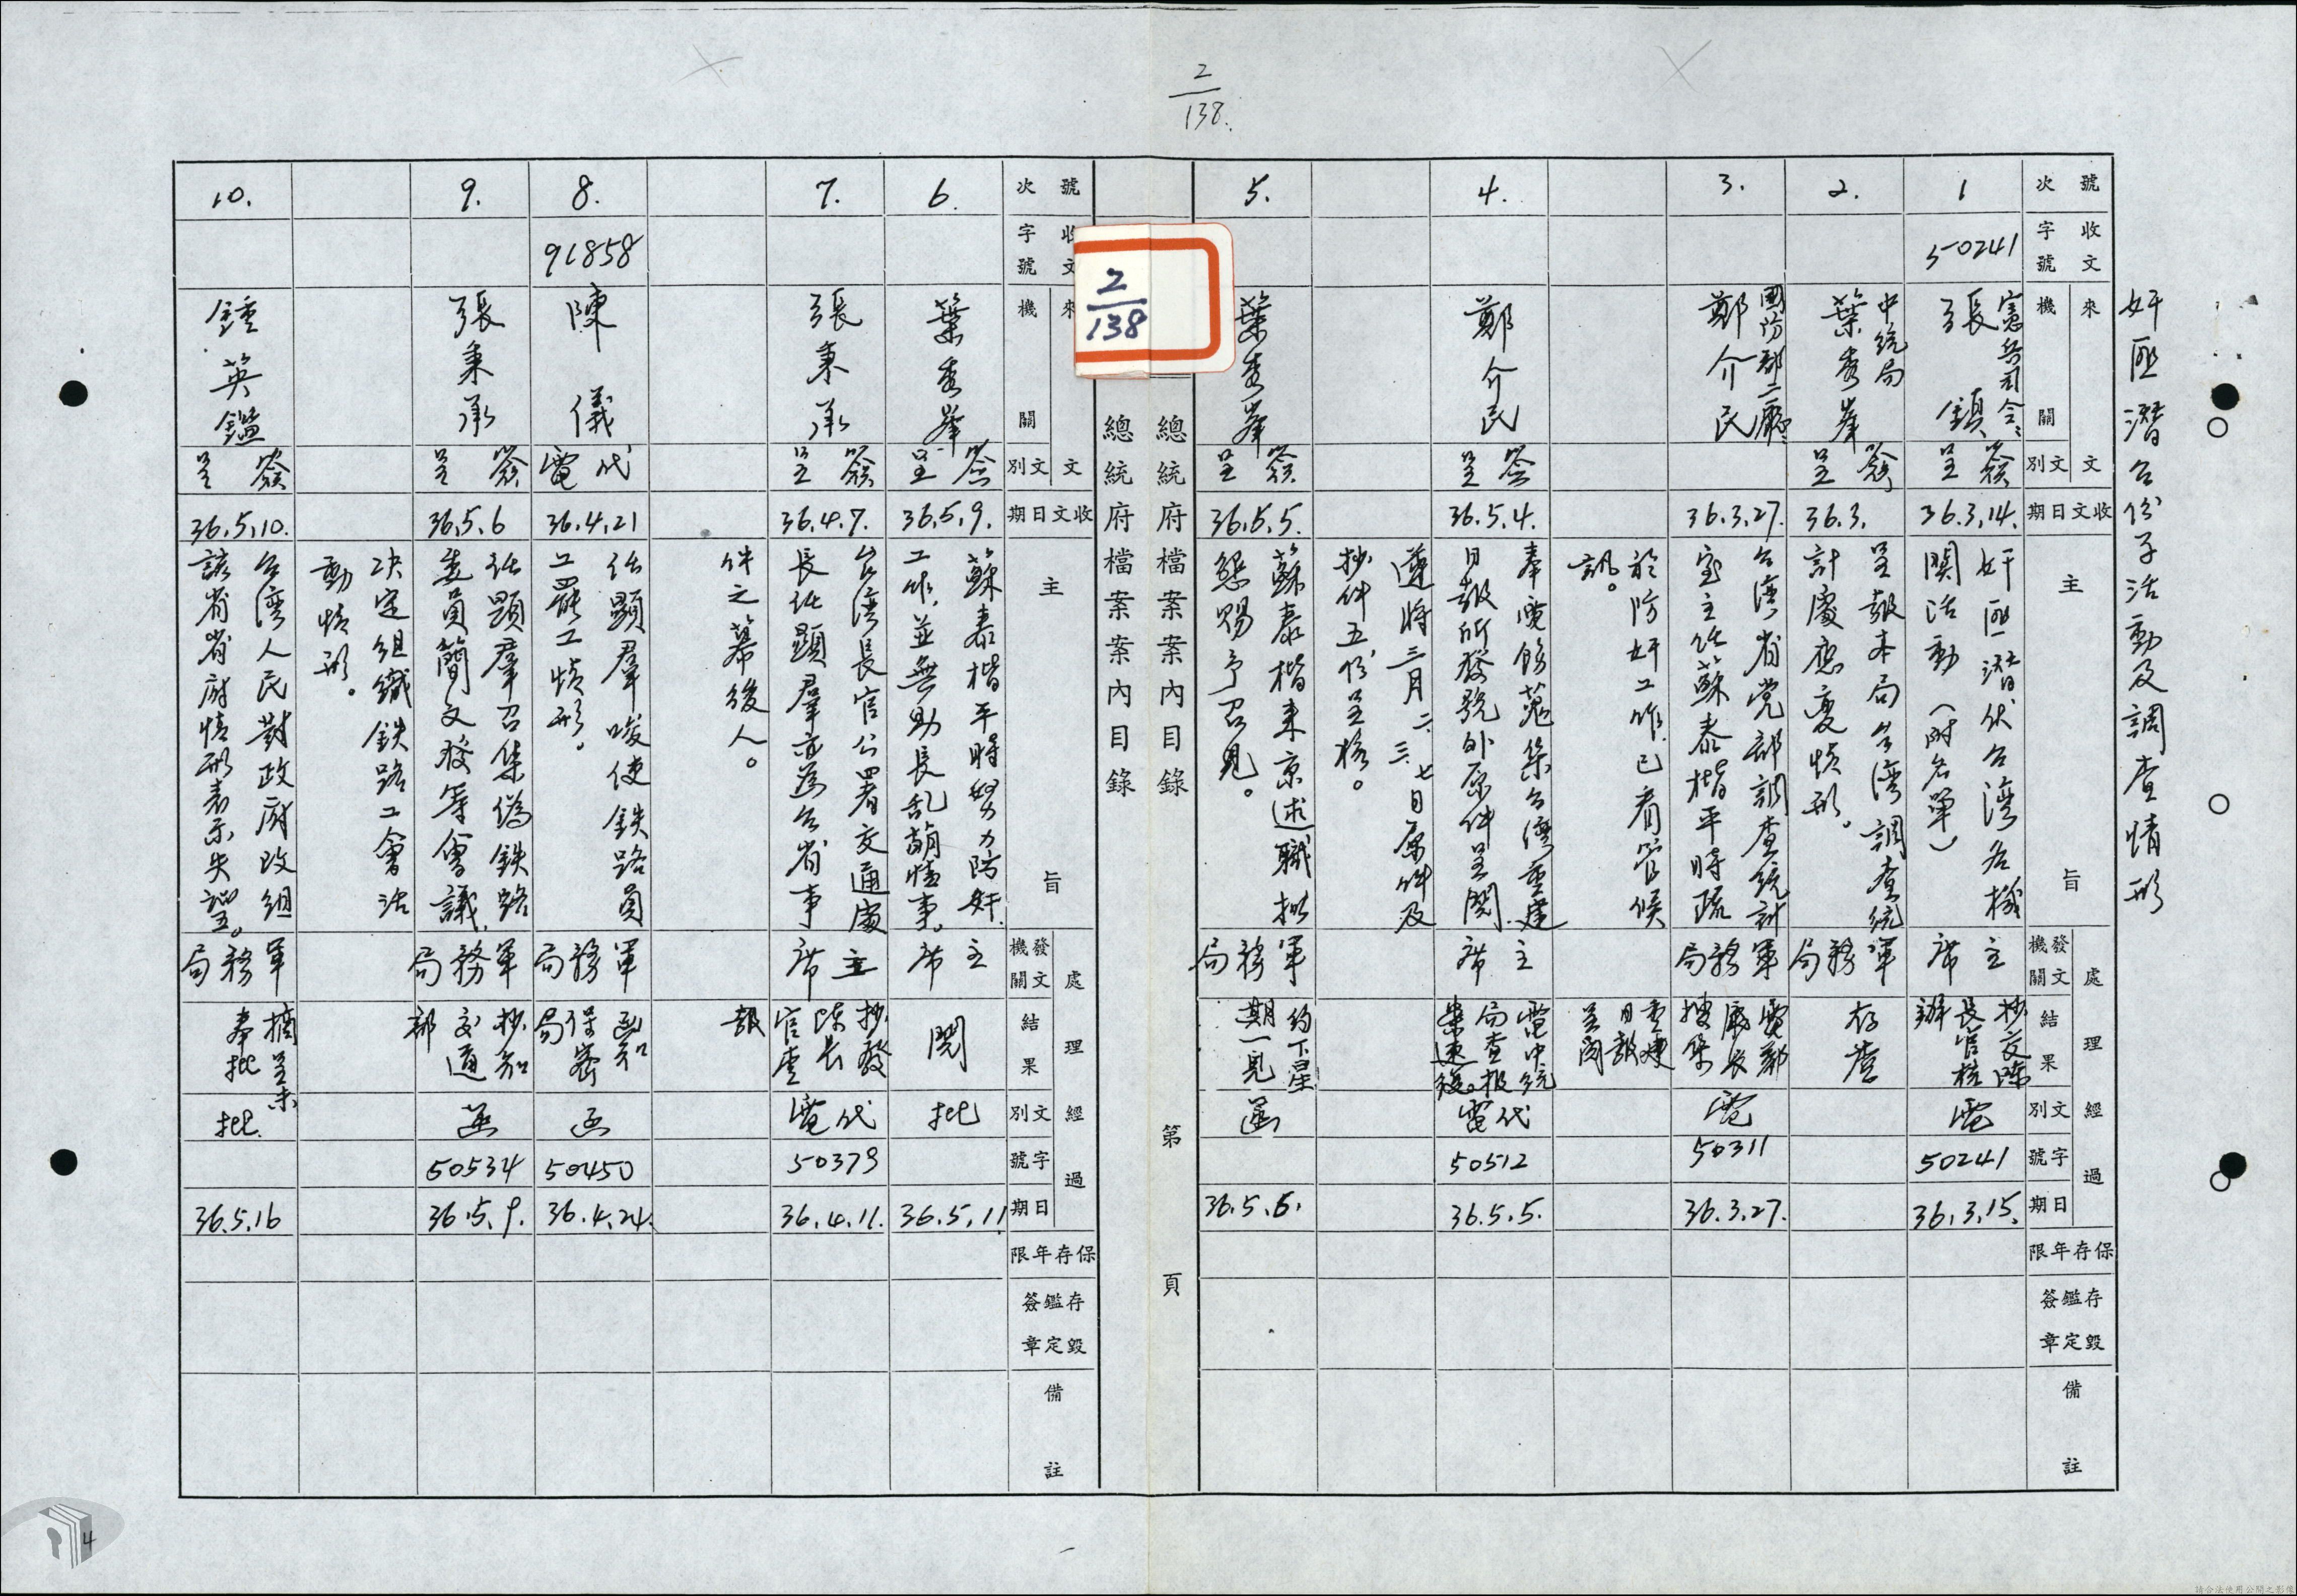 2
138.
奸匪潛台份子活動及調查情形
號次
收文字號
來文機關
文別
收文日期
主旨
處理經過
發文機關
結果
文別
字號
日期
保存年限
存毀鑑定簽章
備註
1
50241
憲兵司令
張鎮
簽呈
36.3.14.
奸匪潛伏台灣各機
關活動(附名單)
主席
抄交陳
長官核
辦
電
50241
36.3.15.
2.
中統局
葉秀峯
簽呈
36.3.
呈報本局台灣調查統
計處應變情形。
軍務局
存查
3.
國防部二廳
鄭介民
36.3.27.
台灣省党部調查統計
室主任蘇泰楷平時疏
於防奸工作已看管候
訊。
軍務局
電鄭
廳長
搜集
重建
日報
呈閱
電
50311
36.3.27.
4.
鄭介民
簽呈
36.5.4.
奉電飭蒐集台灣重建
日報所發號外原件呈閱
遵將三月二、三、七日原件及
抄件五份呈核。
主席
電中統
局查报
業速復。
代電
50512
36.5.5.
5.
葉秀峯
簽呈
36.5.5.
蘇泰楷来京述職擬
懇賜予召見。
軍務局
約下星
期一見
函
36.5.6.
總統府檔案案內目錄
第 頁
2
138
總統府檔案案內目錄
號次
收文字號
來文機關
文別
收文日期
主旨
處理經過
發文機關
結果
文別
字號
日期
保存年限
存毀鑑定簽章
備註
6.
葉秀峯
簽呈
36.5.9.
蘇泰楷平時努力防奸
工作,並無助長乱萌情事。
主席
閱
批
36.5.11
7.
張秉承
簽呈
36.4.7.
台灣長官公署交通處
長任顯羣亦為台省事
件之幕後人。
主席
抄發
陳長
官查
報
代電
50379
36.4.11.
8.
91858
陳儀
代電
36.4.21
任顯羣唆使鉄路員
工罷工情形。
軍務局
函知
保密
局
函
50450
36.4.24.
9.
張秉承
簽呈
36.5.6
任顯羣召集偽鉄路
委員簡文發等會議,
决定組織鉄路工會活
動情形。
軍務局
抄知
交通
部
函
50534
36.5.9.
10.
鍾英鑑
簽呈
36.5.10.
台灣人民對政府改組
該省省府情形表示失望。
軍務局
摘呈未
奉批
批.
36.5.16
4
請合法使用公開之影像